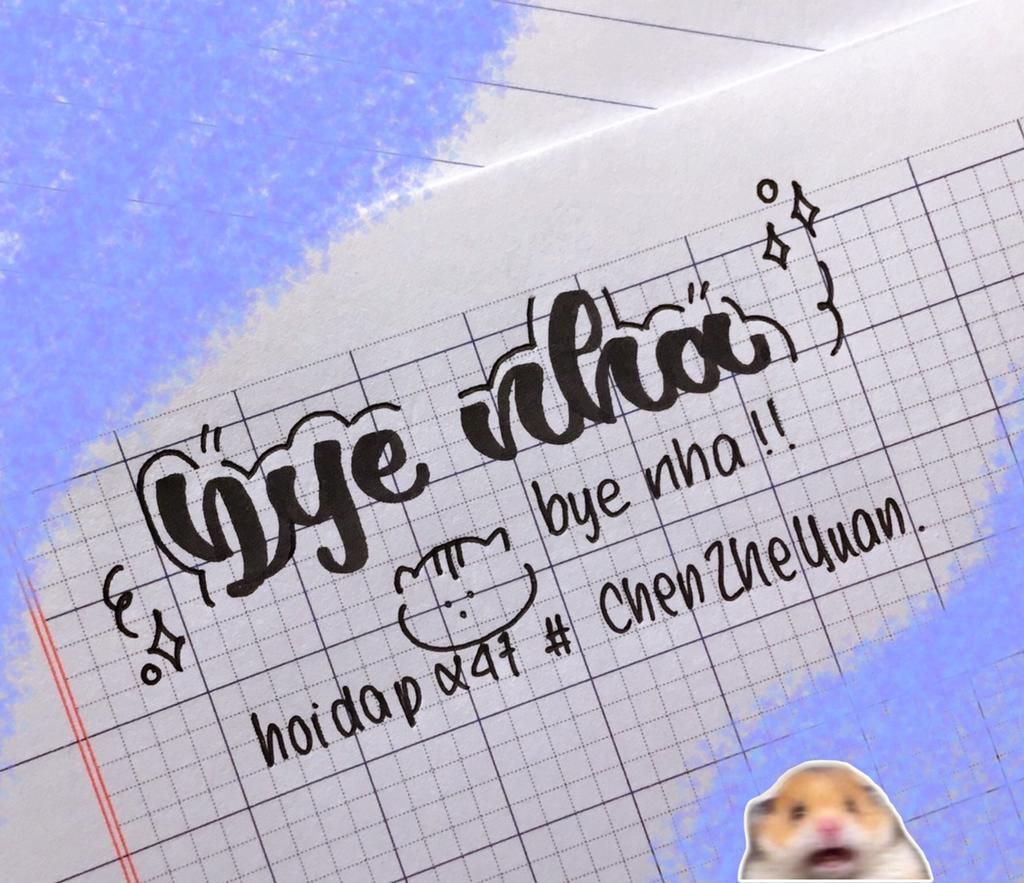 bye nha
bye nha !!
hoidap 247 # ChenZheYuan.